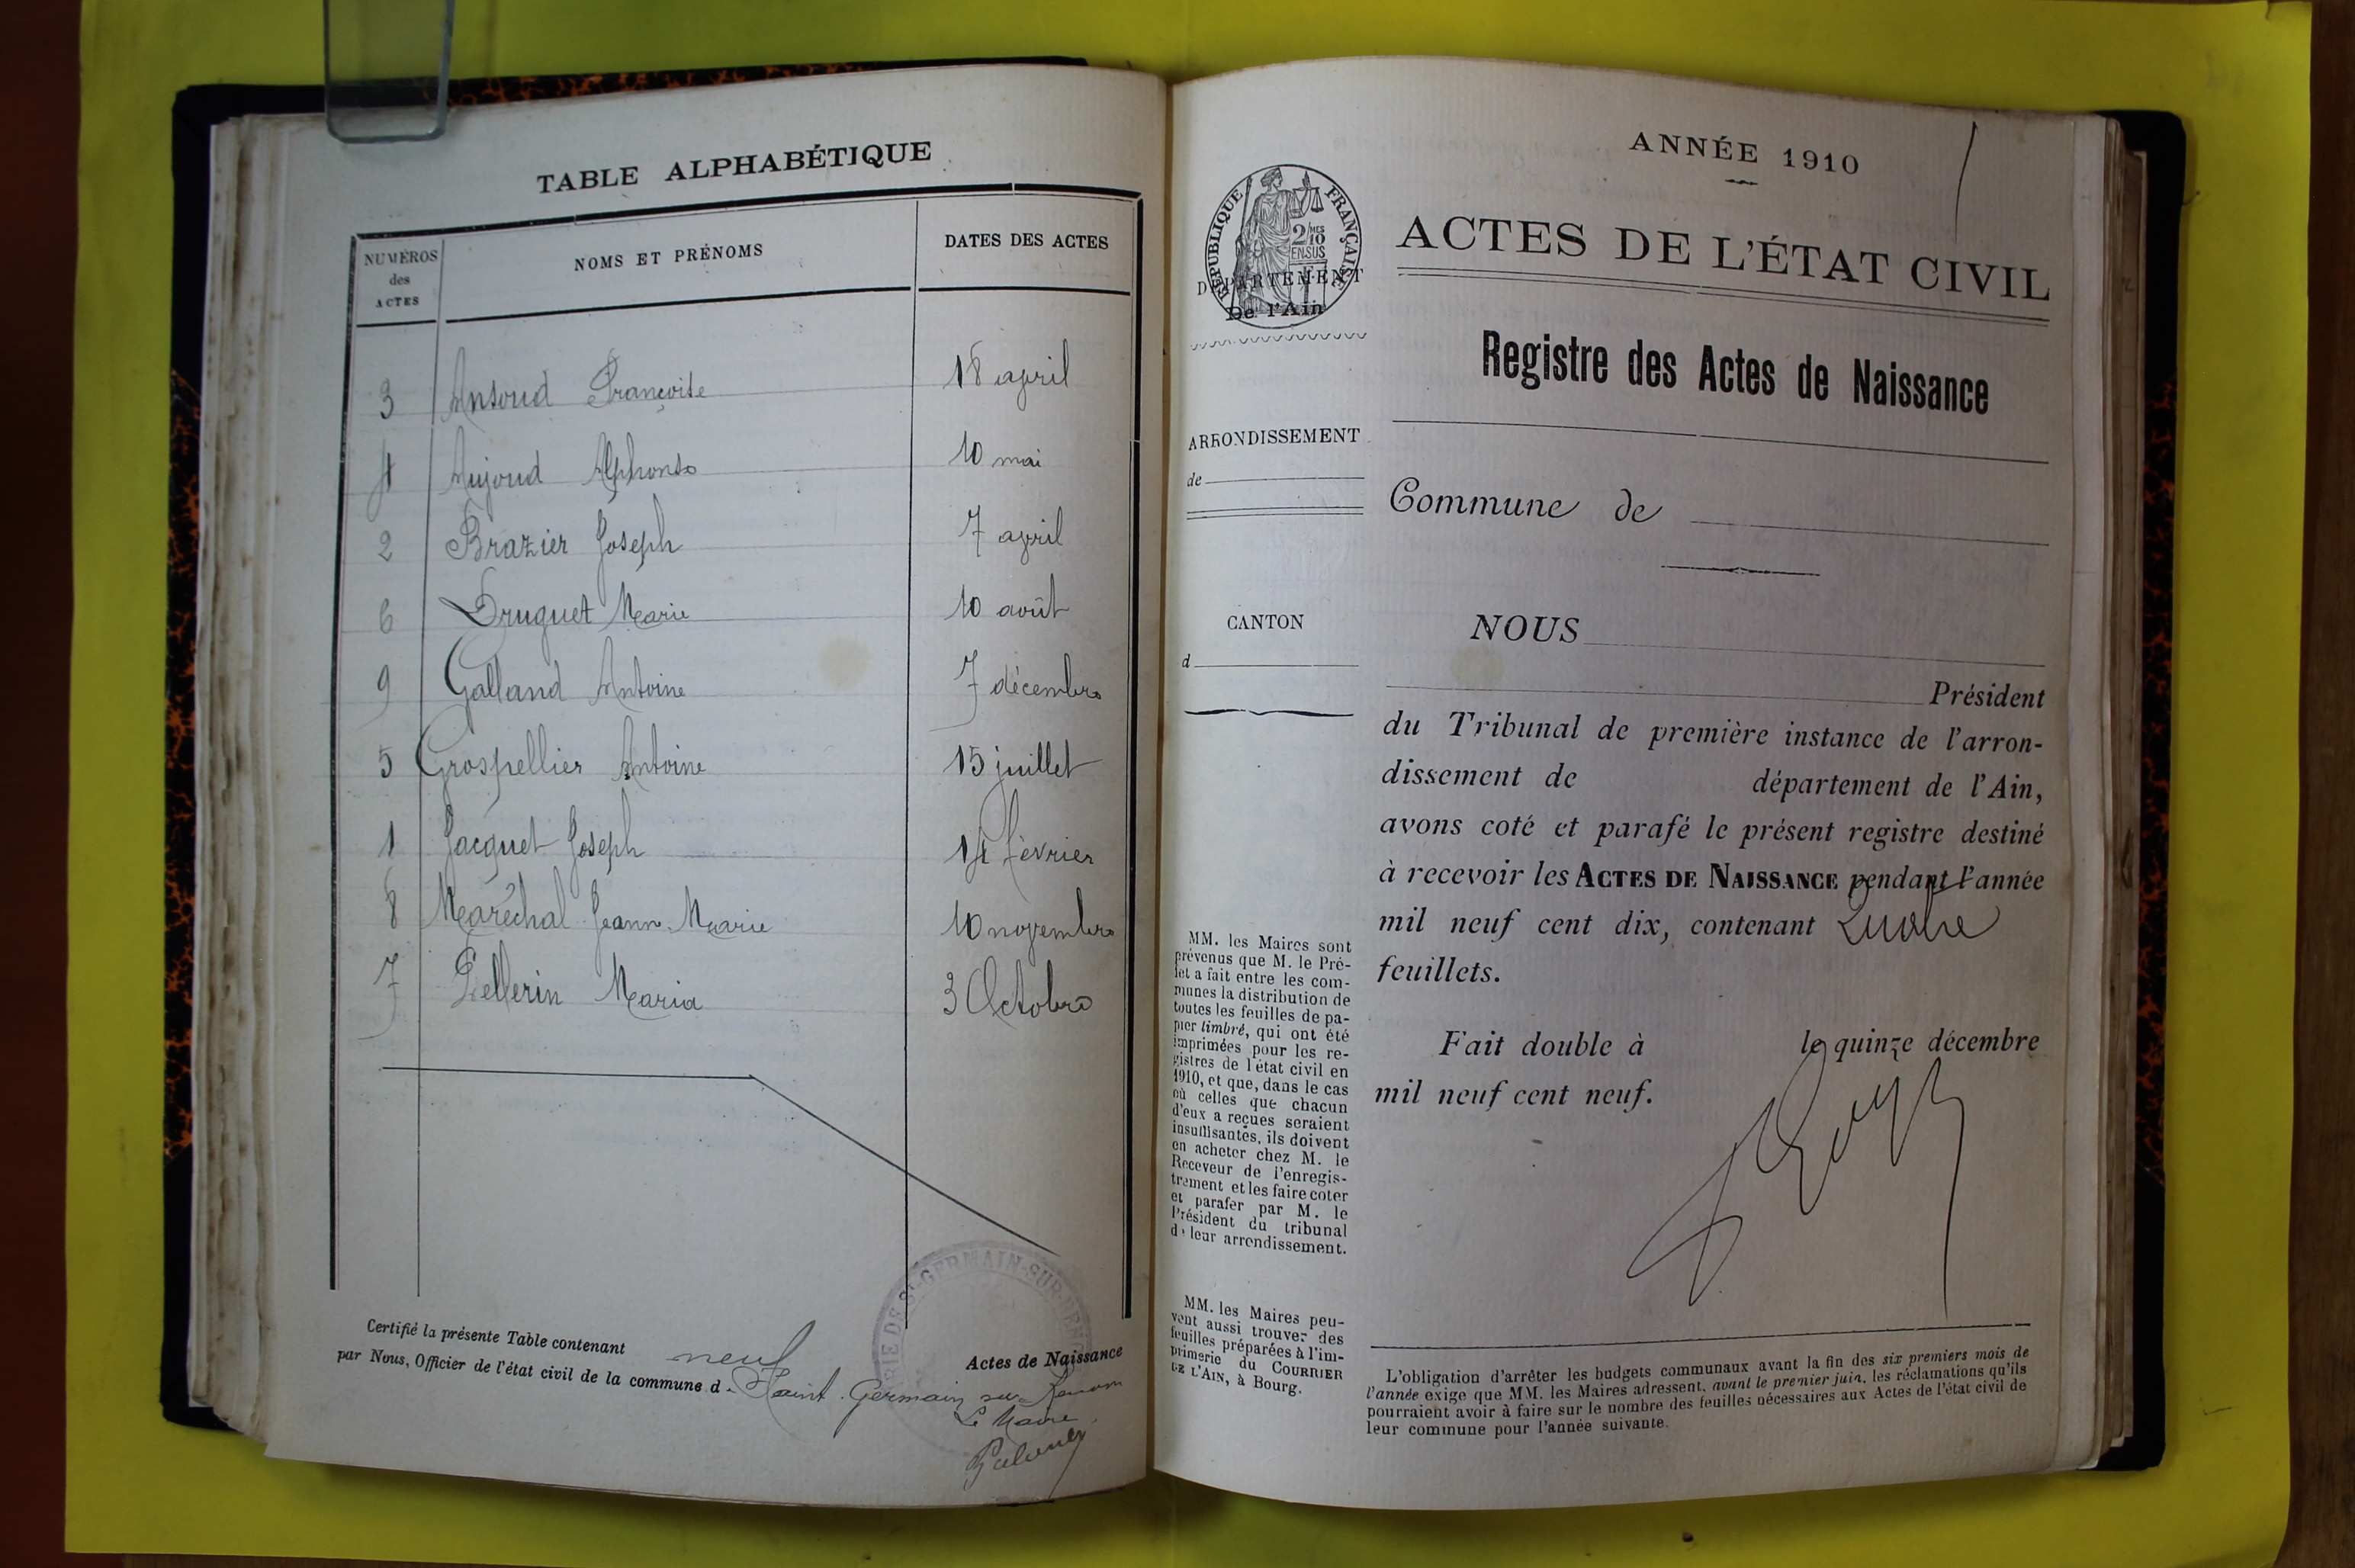 TABLE ALPHABÉTIQUE
NUMÉROS des ACTES NOMS ET PRÉNOMS DATES DES ACTES
3 Ansoud Françoise 18 avril
4 Aujoud Alphonse 10 mai
2 Brazier Joseph 7 avril
6 Druguet Marie 10 août
9 Galland Antoine 7 décembre
5 Grospellier Antoine 15 juillet
1 Jacquet Joseph 14 février
8 Maréchal Jeann-Marie 10 novembre
7 Pellerin Maria 3 Octobre
Certifié la présente Table contenant neuf Actes de Naissance
par Nous, Officier de l'état civil de la commune d. Saint-Germain sur Renom
Le Maire
MAIRIE DE ST GERMAIN-SUR-RENON
ANNÉE 1910
RÉPUBLIQUE FRANÇAISE
2/10 MES
EN SUS
DÉPARTEMENT
De l'Ain
ACTES DE L'ÉTAT CIVIL
Registre des Actes de Naissance
ARRONDISSEMENT
de
Commune de
CANTON
d
NOUS
Président
du Tribunal de première instance de l'arron-
dissement de département de l'Ain,
avons coté et parafé le présent registre destiné
à recevoir les ACTES DE NAISSANCE pendant l'année
mil neuf cent dix, contenant Quatre
feuillets.
Fait double à le quinze décembre
mil neuf cent neuf.
MM. les Maires sont
prévenus que M. le Pré-
fet a fait entre les com-
munes la distribution de
toutes les feuilles de pa-
pier timbré, qui ont été
imprimées pour les re-
gistres de l'état civil en
1910, et que, dans le cas
où celles que chacun
d'eux a reçues seraient
insuffisantes, ils doivent
en acheter chez M. le
Receveur de l'enregis-
trement et les faire coter
et parafer par M. le
Président du tribunal
de leur arrondissement.
MM. les Maires peu-
vent aussi trouver des
feuilles préparées à l'im-
primerie du COURRIER
DE L'AIN, à Bourg.
L'obligation d'arrêter les budgets communaux avant la fin des six premiers mois de
l'année exige que MM. les Maires adressent, avant le premier juin, les réclamations qu'ils
pourraient avoir à faire sur le nombre des feuilles nécessaires aux Actes de l'état civil de
leur commune pour l'année suivante.